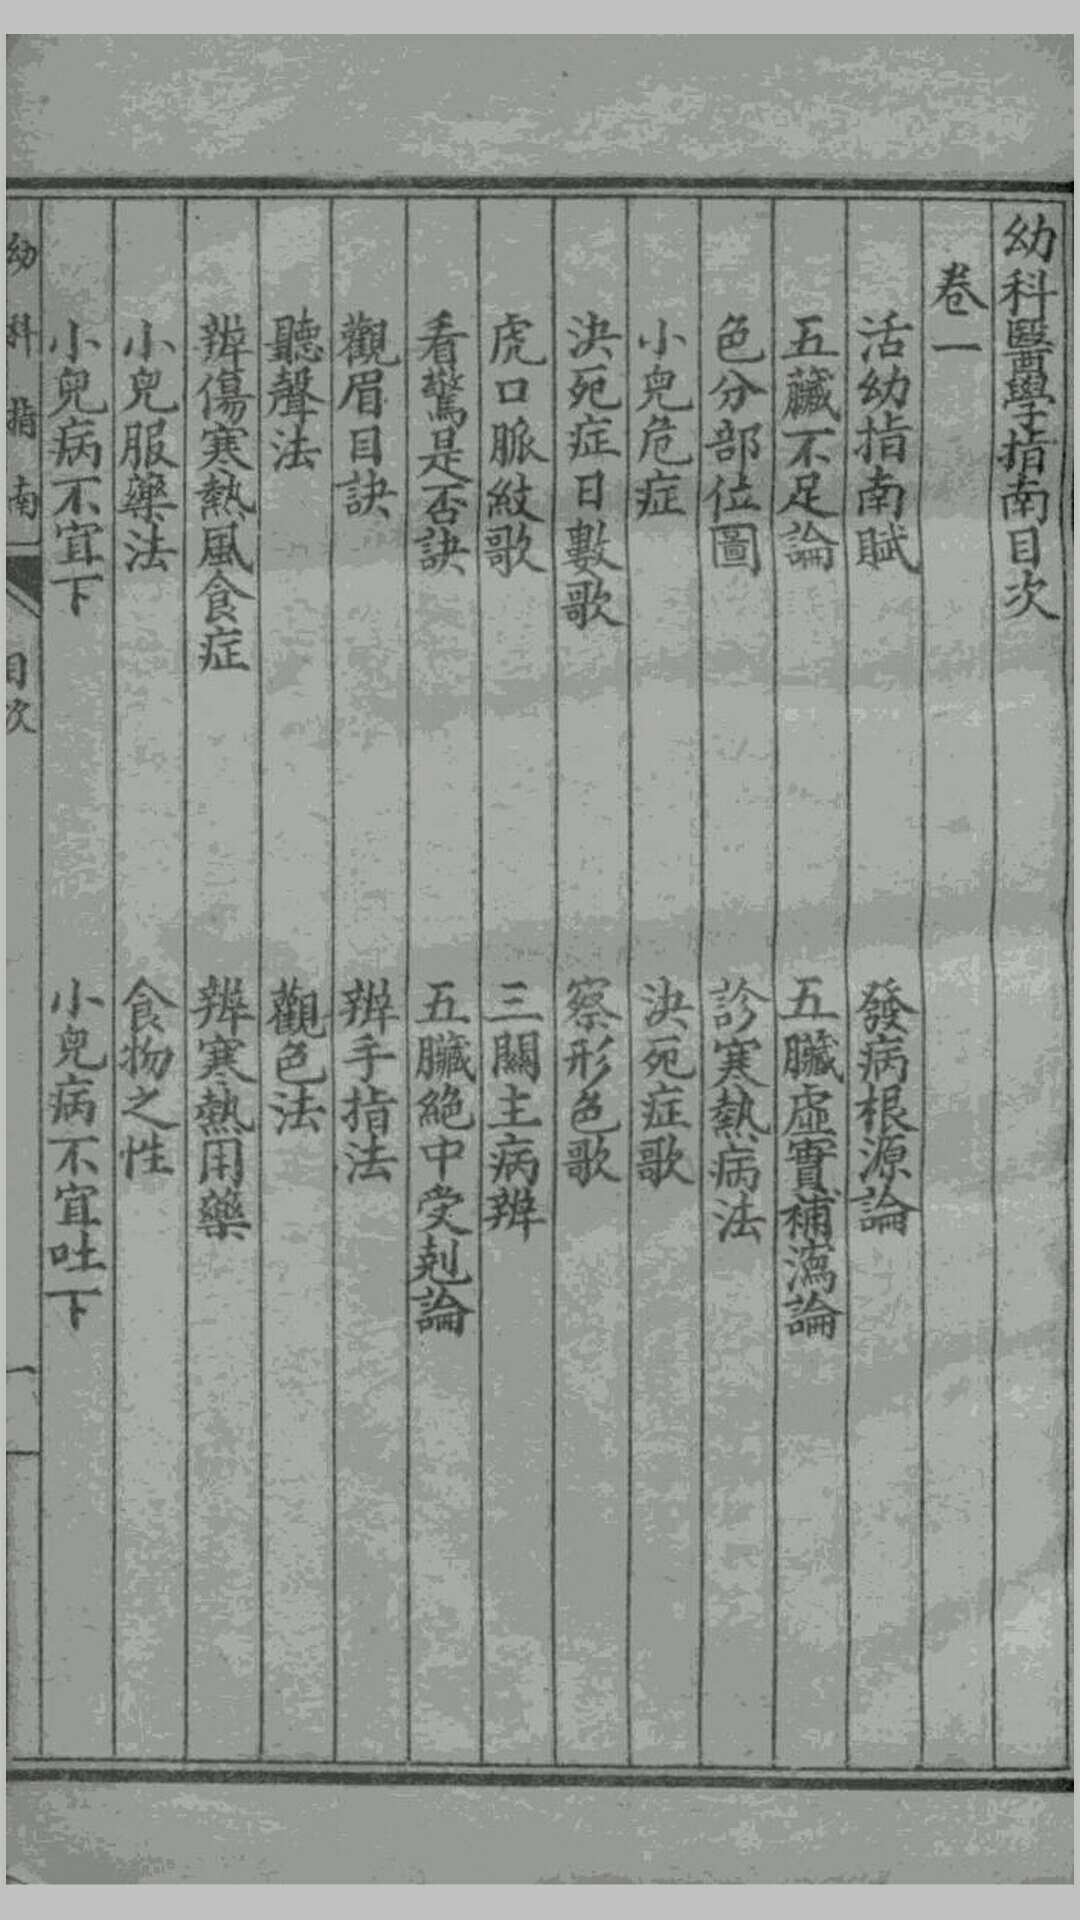 幼科醫學指南目次
卷一
活幼指南賦　發病根源論
五臟不足論　五臟虛實補瀉論
色分部位圖　診寒熱病法
小兒危症　決死症歌
決死症日數歌　察形色歌
虎口脈紋歌　三關主病辨
看驚是否訣　五臟絕中受剋論
觀眉目訣　辨手指法
聽聲法　觀色法
辨傷寒熱風食症　辨寒熱用藥
小兒服藥法　食物之性
小兒病不宜下　小兒病不宜吐下
幼科指南　目次　一